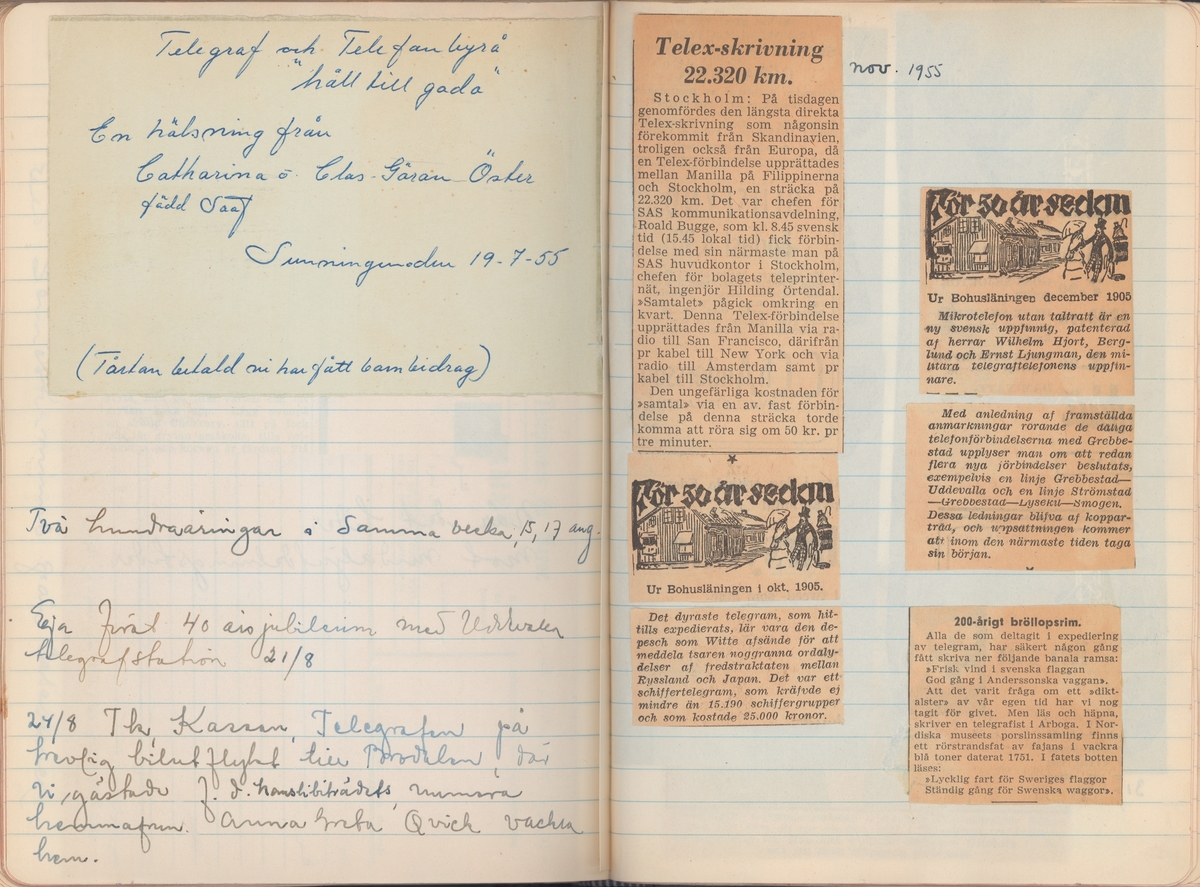 Telegraf och Telefonbyrå
"håll till godo"
En hälsning från
Catharina o. Clas-Göran Öster
född Sääf
Sunningen den 19-7-55
(Tårtan betald vi har fått barnbidrag)
Två hundraåringar i samma vecka, 15, 17 aug.
Eja firat 40 årsjubileum med Uddevalla
telegrafstation 21/8
24/8 Tk, Kassan, Telegrafen på
trevlig bilutflykt till där
vi gästade f.d. kanslibiträdets numera
hemmafrun Anna Greta Qvick vackra
hem.
Telex-skrivning
22.320 km.
Stockholm: På tisdagen
genomfördes den längsta direkta
Telex-skrivning som någonsin
förekommit från Skandinavien,
troligen också från Europa, då
en Telex-förbindelse upprättades
mellan Manilla på Filippinerna
och Stockholm, en sträcka på
22.320 km. Det var chefen för
SAS kommunikationsavdelning,
Roald Bugge, som kl. 8.45 svensk
tid (15.45 lokal tid) fick förbin-
delse med sin närmaste man på
SAS huvudkontor i Stockholm,
chefen för bolagets teleprinter-
nät, ingenjör Hilding Örtendal.
»Samtalet» pågick omkring en
kvart. Denna Telex-förbindelse
upprättades från Manilla via ra-
dio till San Francisco, därifrån
pr kabel till New York och via
radio till Amsterdam samt pr
kabel till Stockholm.
Den ungefärliga kostnaden för
»samtal» via en av. fast förbin-
delse på denna sträcka torde
komma att röra sig om 50 kr. pr
tre minuter.
För 50 år sedan
Ur Bohusläningen i okt. 1905.
Det dyraste telegram, som hit-
tills expedierats, lär vara den de-
pesch som Witte afsände för att
meddela tsaren noggranna ordaly-
delser af fredstraktaten mellan
Ryssland och Japan. Det var ett
schiffertelegram, som kräfvde ej
mindre än 15.190 schiffergrupper
och som kostade 25.000 kronor.
nov. 1955
För 50 år sedan
Ur Bohusläningen december 1905
Mikrotelefon utan taltratt är en
ny svensk uppfinnig, patenterad
af herrar Wilhelm Hjort, Berg-
lund och Ernst Ljungman, den mi-
litära telegraftelefonens uppfin-
nare.
Med anledning af framställda
anmärkningar rörande de dåliga
telefonförbindelserna med Grebbe-
stad upplyser man om att redan
flera nya förbindelser beslutats,
exempelvis en linje Grebbestad—
Uddevalla och en linje Strömstad
—Grebbestad—Lysekil—Smögen.
Dessa ledningar blifva af koppar-
tråd, och uppsättningen kommer
att inom den närmaste tiden taga
sin början.
200-årigt bröllopsrim.
Alla de som deltagit i expediering
av telegram, har säkert någon gång
fått skriva ner följande banala ramsa:
»Frisk vind i svenska flaggan
God gång i Anderssonska vaggan».
Att det varit fråga om ett »dikt-
alster» av vår egen tid har vi nog
tagit för givet. Men läs och häpna,
skriver en telegrafist i Arboga. I Nor-
diska museets porslinssamling finns
ett rörstrandsfat av fajans i vackra
blå toner daterat 1751. I fatets botten
läses:
»Lycklig fart för Sweriges flaggor
Ständig gång för Swenska waggor».